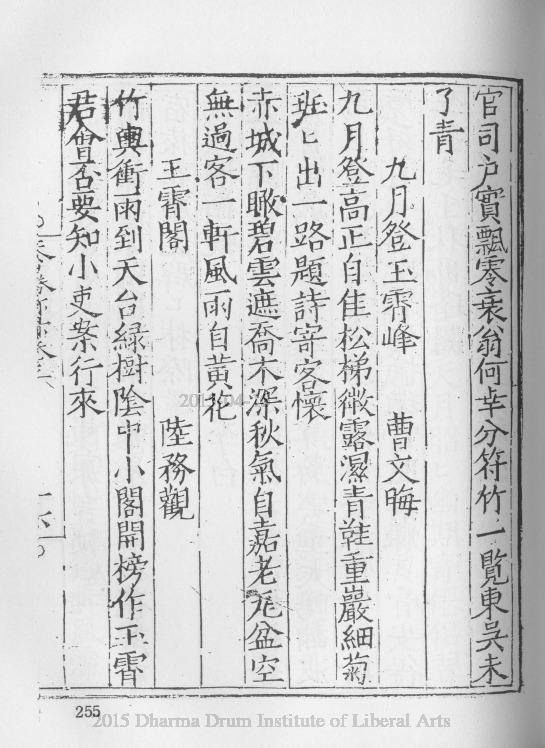 官司户實飄零衰翁何幸分符竹一覽東吳未
了青
九月登玉霄峰 曹文晦
九月登高正自佳松梯微露濕青鞋重巖細菊
班匕出一路題詩寄客懷
赤城下瞰碧雲遮喬木深秋氣自嘉老瓦盆空
無過客一軒風雨自黄花
玉霄閣 陸務觀
竹輿衝雨到天台綠樹陰中小閣開榜作玉霄
君會否要知小吏案行來
255
2015 Dharma Drum Institute of Liberal Arts